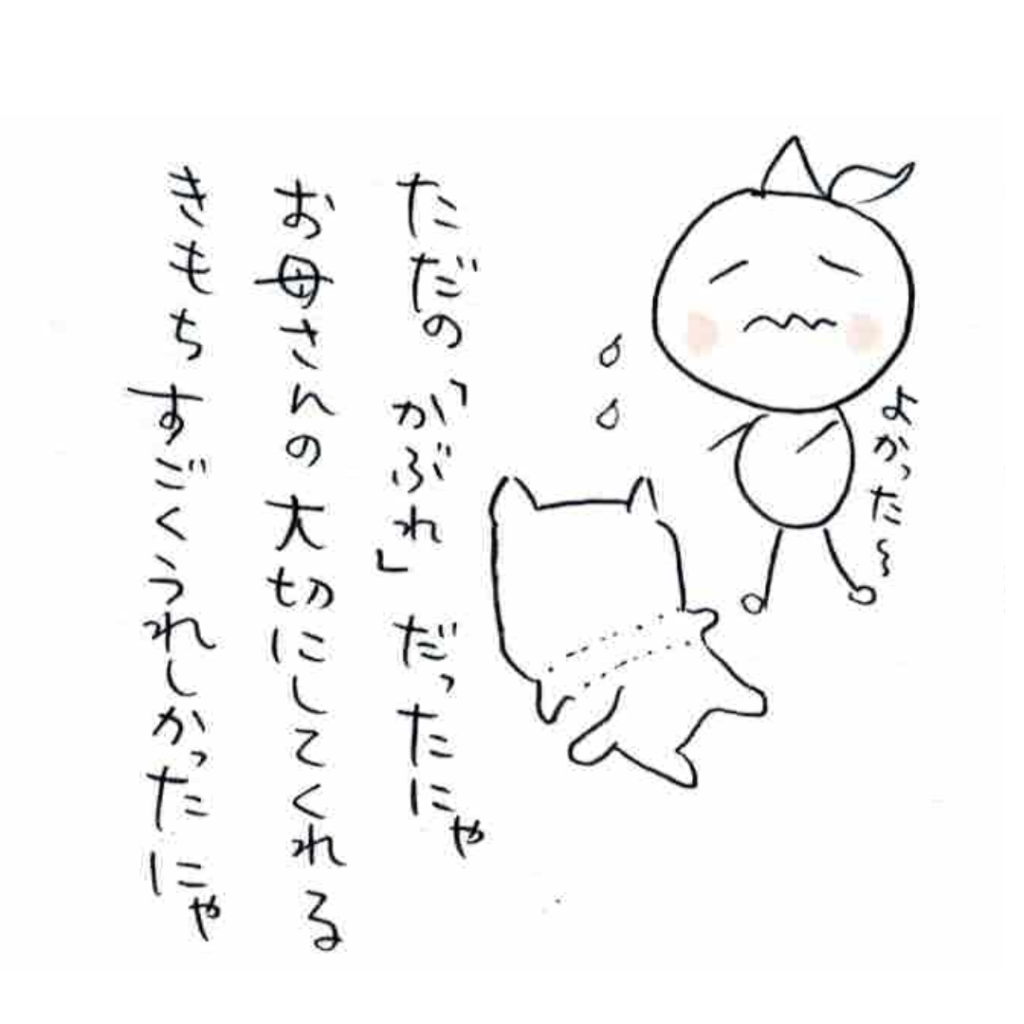 よかった〜
ただの「かぶれ」だったにゃ
お母さんの大切にしてくれる
きもちすごくうれしかったにゃ